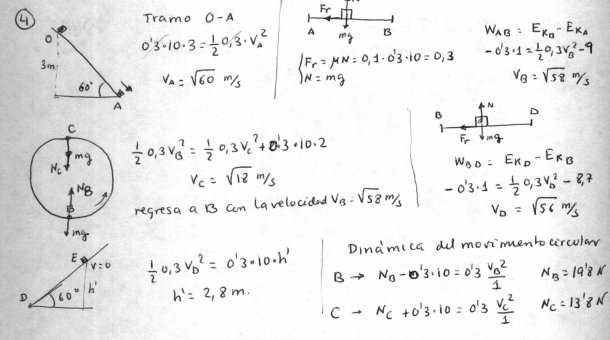 4
O
3m
60°
A
Tramo O-A
0'3·10·3 = 1/2 0,3·V_A²
V_A = √60 m/s
Fr
N
A mg B
{Fr = μN = 0,1·0'3·10 = 0,3
N = mg
W_AB = E_KB - E_KA
-0'3·1 = 1/2 0,3 V_B² - 9
V_B = √58 m/s
C
mg
N_C
N_B
B
mg
1/2 0,3 V_B² = 1/2 0,3 V_C² + 0'3·10·2
V_C = √18 m/s
regresa a B con la velocidad V_B = √58 m/s
N
B D
Fr mg
W_BD = E_KD - E_KB
-0'3·1 = 1/2 0,3 V_D² - 8,7
V_D = √56 m/s
E
v=0
h'
D 60°
1/2 0,3 V_D² = 0'3·10·h'
h' = 2,8 m.
Dinámica del movimiento circular
B → N_B - 0'3·10 = 0'3 V_B²/1 N_B = 19'8 N
C → N_C + 0'3·10 = 0'3 V_C²/1 N_C = 13'8 N